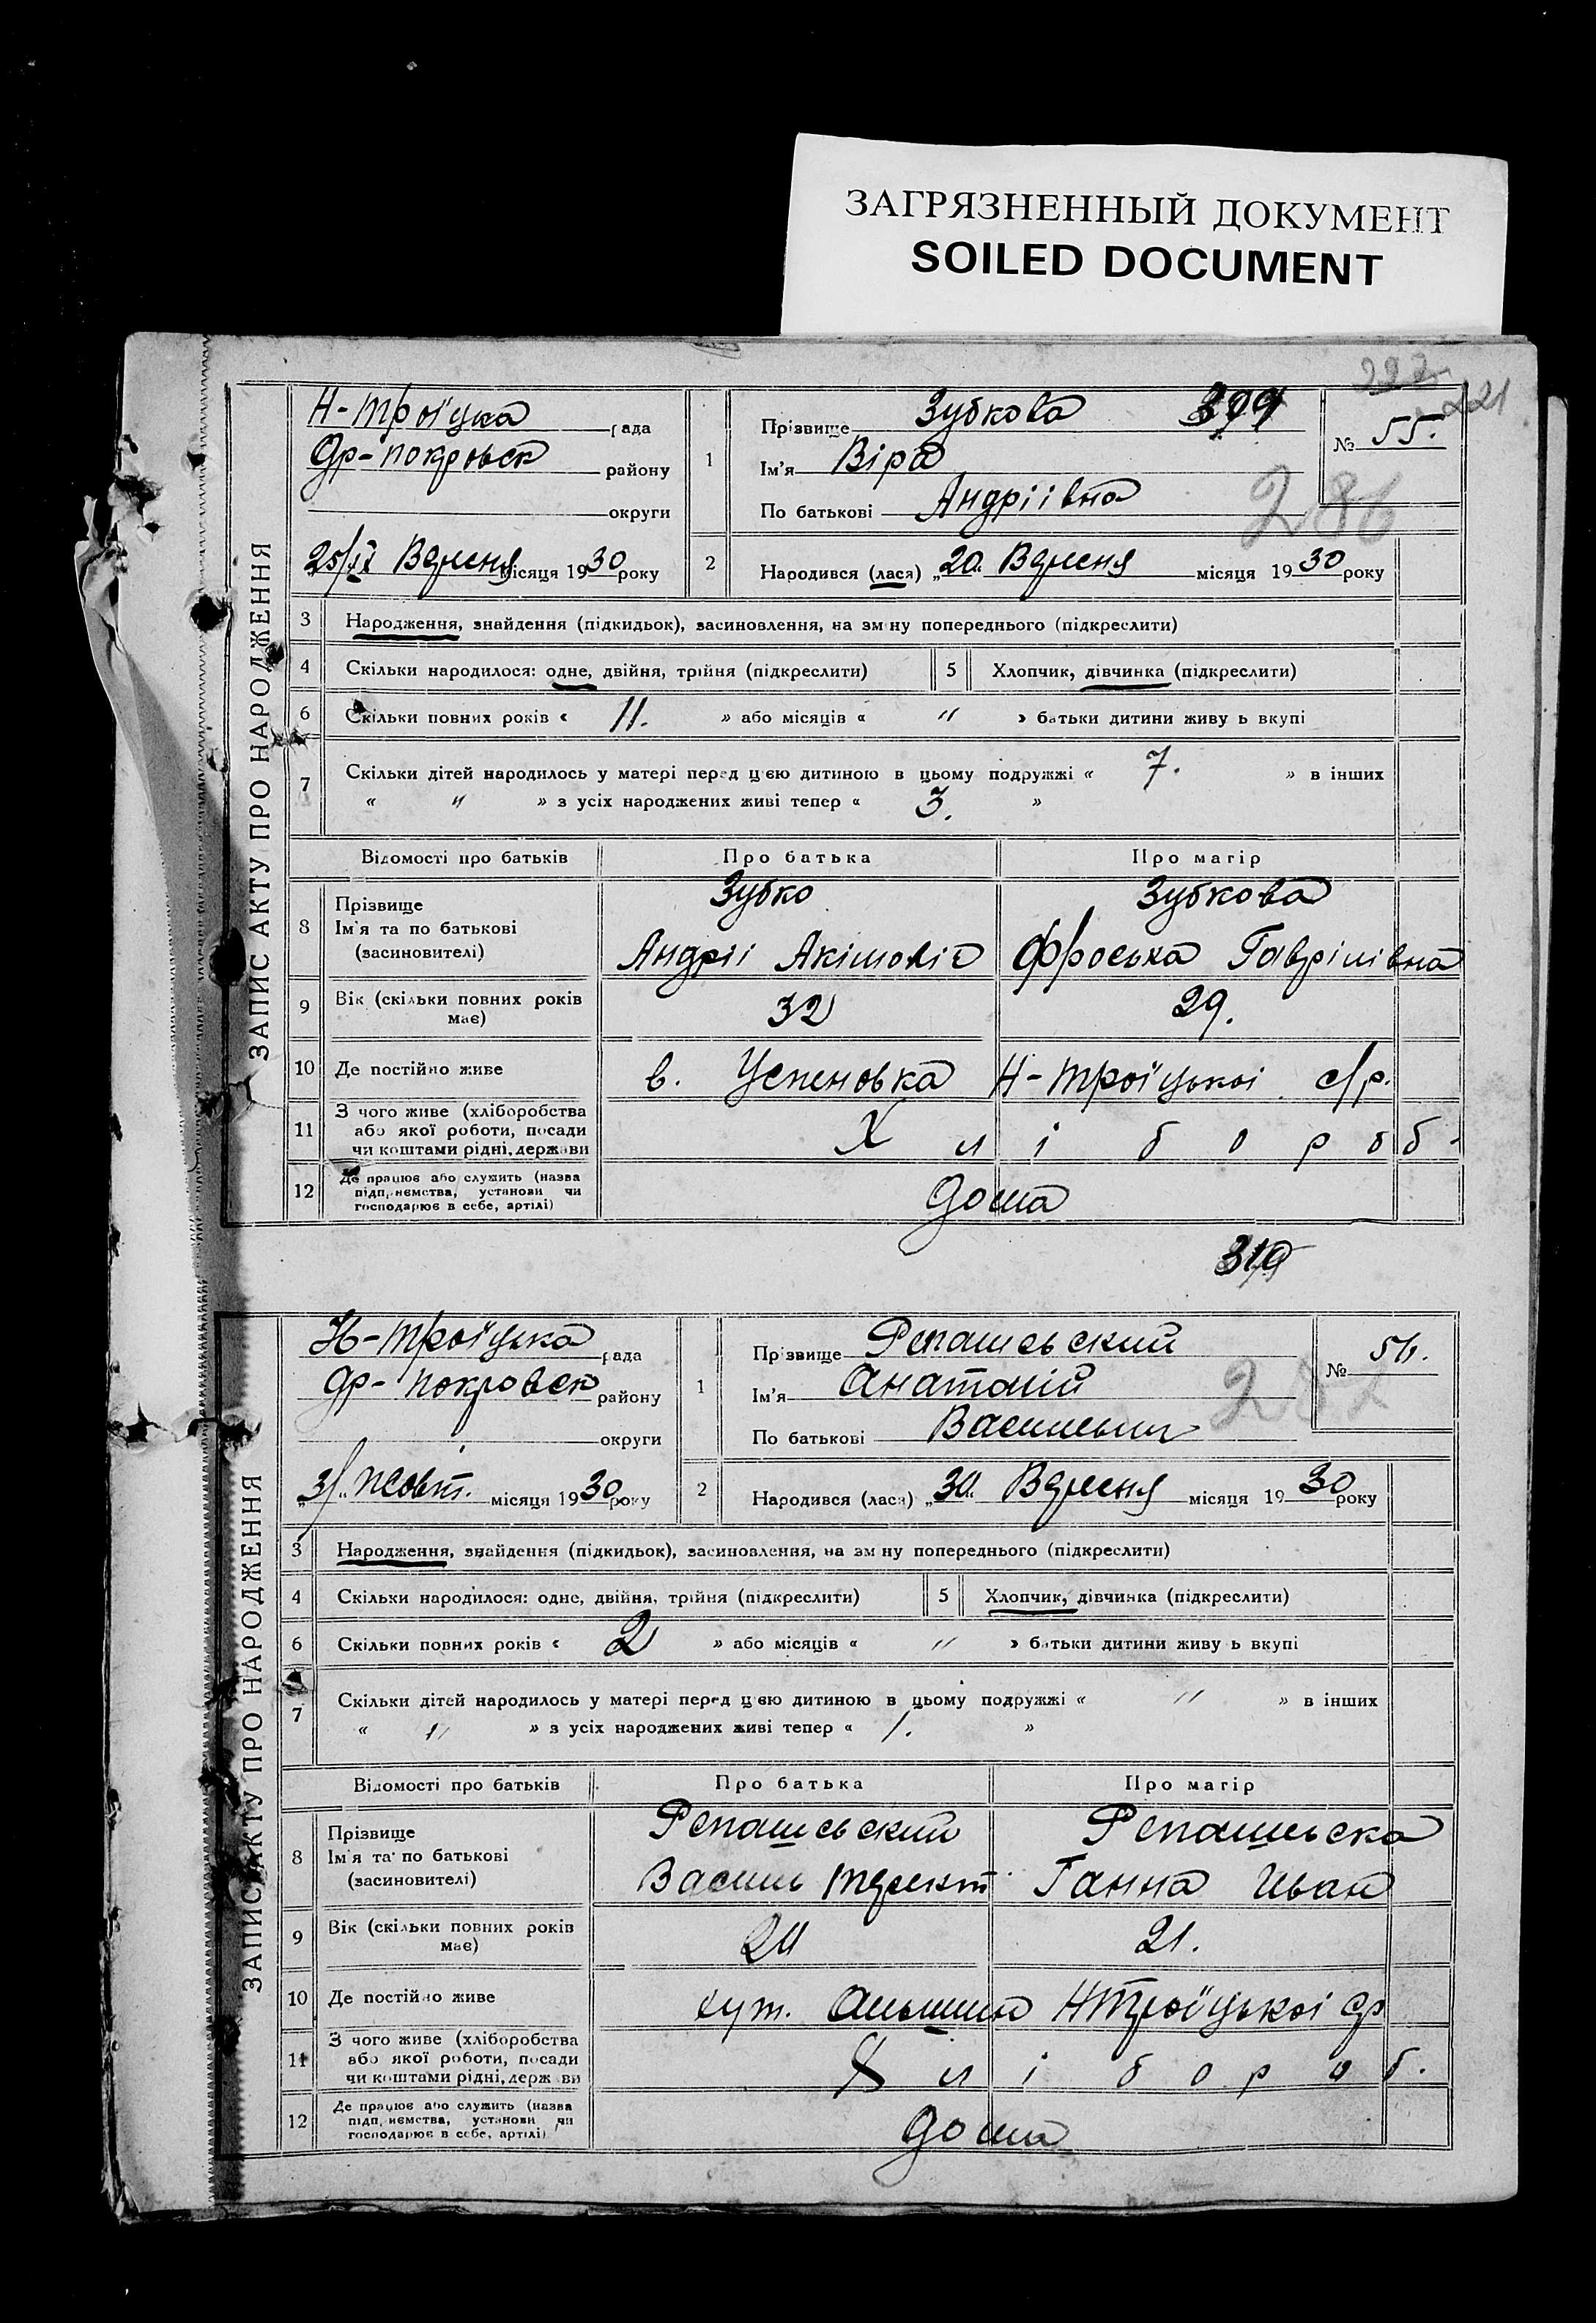 ЗАГРЯЗНЕННЫЙ ДОКУМЕНТ
SOILED DOCUMENT
221
ЗАПИС АКТУ ПРО НАРОДЖЕННЯ
Н-Троїцка рада
Др-покровск району
округи
25/IX Вересня місяця 1930 року
1 Прізвище Зубкова
Ім'я Віра
По батькові Андріівна
№ 55.
286
2 Народився (лася) „20“ Вересня місяця 1930 року
3 Народження, знайдення (підкидьок), засиновлення, на зміну попереднього (підкреслити)
4 Скільки народилося: одне, двійня, трійня (підкреслити) 5 Хлопчик, дівчинка (підкреслити)
6 Скільки повних років « 11. » або місяців « " » батьки дитини живуть вкупі
7 Скільки дітей народилось у матері перед цією дитиною в цьому подружжі « 7. » в інших
« " » з усіх народжених живі тепер « 3. »
Відомості про батьків Про батька Про матір
8 Прізвище Ім'я та по батькові (засиновителі)
Зубко Зубкова
Андріі Акімовіч Фроська Гаврілівна
9 Вік (скільки повних років має) 32 29.
10 Де постійно живе в. Успеновка Н-Троїцькоі с/р.
11 З чого живе (хліборобства
або якої роботи, посади
чи коштами рідні, держави Хлібороб.
12 Де працює або служить (назва
підприємства, установи чи
господарює в себе, артілі) дома
319
ЗАПИС АКТУ ПРО НАРОДЖЕННЯ
Н-Троїцька рада
Др-покровск району
округи
„3/“ жовт. місяця 1930 року
1 Прізвище
Ім'я Анатолій
По батькові Васильевич
№ 56.
2 Народився (лася) „30“ Вересня місяця 1930 року
3 Народження, знайдення (підкидьок), засиновлення, на зміну попереднього (підкреслити)
4 Скільки народилося: одне, двійня, трійня (підкреслити) 5 Хлопчик, дівчинка (підкреслити)
6 Скільки повних років « 2 » або місяців « " » батьки дитини живуть вкупі
7 Скільки дітей народилось у матері перед цією дитиною в цьому подружжі « " » в інших
« " » з усіх народжених живі тепер « 1. »
Відомості про батьків Про батька Про матір
8 Прізвище Ім'я та по батькові (засиновителі)
Василь Ганна Иван
9 Вік (скільки повних років має) 21.
10 Де постійно живе хут. НТроїцькоі ср
11 З чого живе (хліборобства
або якої роботи, посади
чи коштами рідні, держави Хлібороб.
12 Де працює або служить (назва
підприємства, установи чи
господарює в себе, артілі) дома